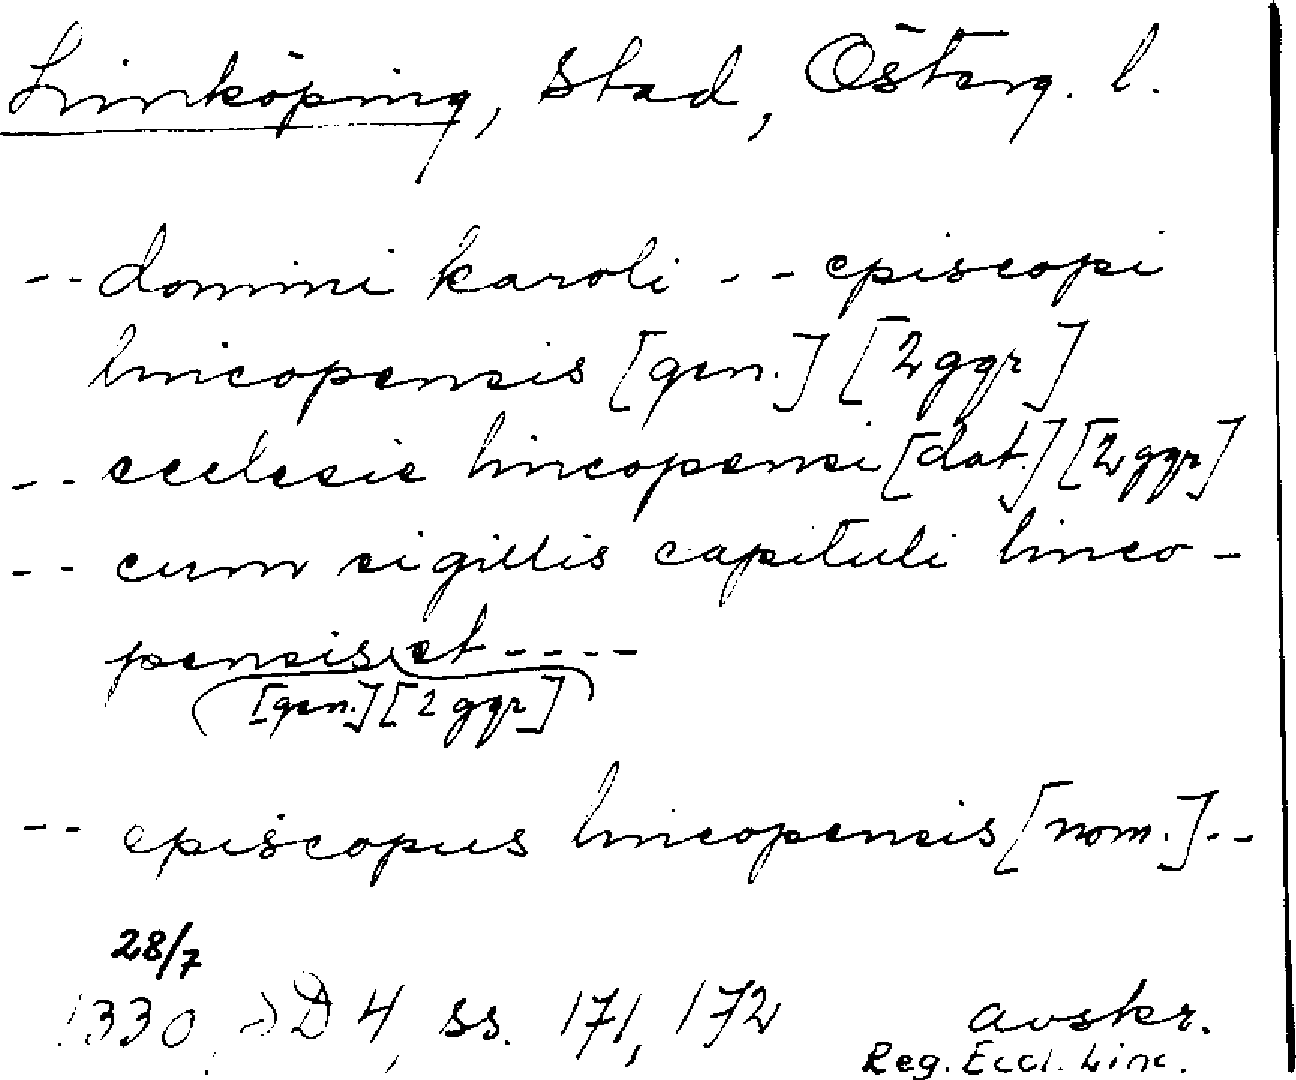 Linköping, Stad, Österg. l.
-- domini karoli -- episcopi
lincopensis [gen.] [2 ggr]
-- ecclesie lincopensi [dat.] [2 ggr]
-- cum sigillis capituli linco-
pensis et ----
[gen.] [2 ggr]
-- episcopus lincopensis [nom.] --
28/7
1330, SD 4, ss. 171, 172 avskr.
Reg. Eccl. Linc.